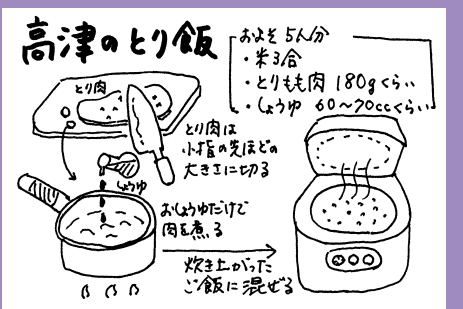 高津のとり飯
およそ5人分
・米3合
・とりもも肉 180gくらい
・しょうゆ 60〜70ccくらい
とり肉
とり肉は
小指の先ほどの
大きさに切る
しょうゆ
おしょうゆだけで
肉を煮る
炊き上がった
ご飯に混ぜる